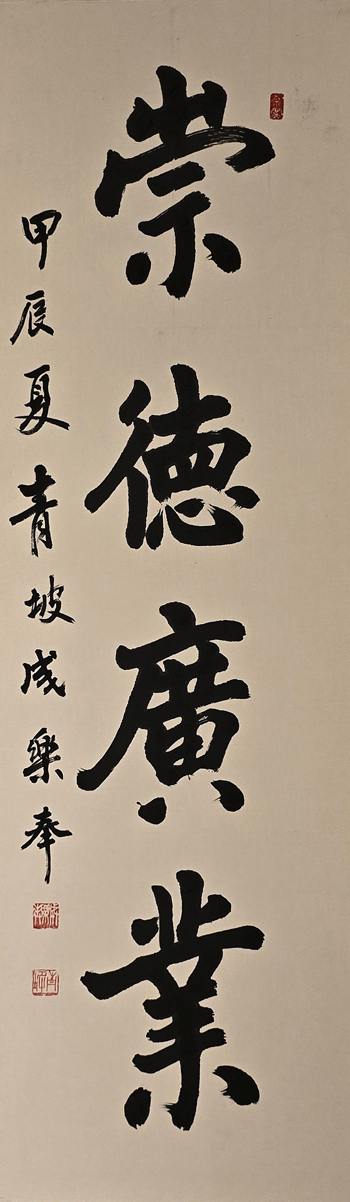 崇德廣業
甲辰夏青坡成樂奉